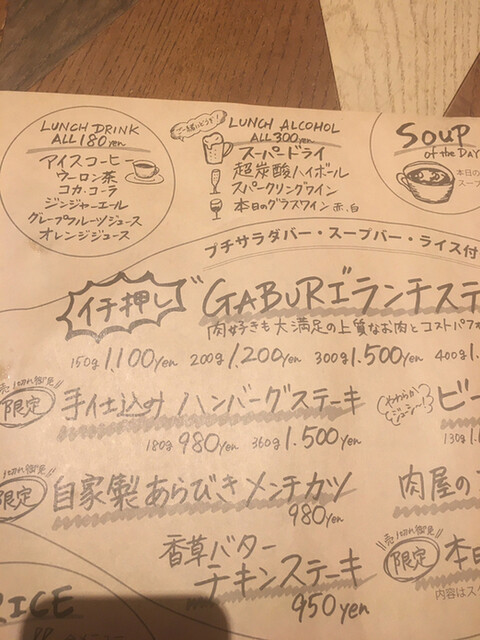 LUNCH DRINK
ALL 180yen
アイスコーヒー
ウーロン茶
コカ・コーラ
ジンジャーエール
グレープフルーツジュース
オレンジジュース
ご一緒にどうぞ!
LUNCH ALCOHOL
ALL 300yen
スーパードライ
超炭酸ハイボール
スパークリングワイン
本日のグラスワイン 赤、白
SOUP
of the DAY
本日の
スープ
プチサラダバー・スープバー・ライス付
イチ押し
GABURi゙ランチステ
肉好きも大満足の上質なお肉とコストパフォ
150g 1,100yen 200g 1,200yen 300g 1,500yen 400g 1.
売り切れ御免!!
限定
手仕込み ハンバーグステーキ
180g 980yen 360g 1,500yen
やわらか
ジューシー!
ビー
130g 1.
切れ御免!!
限定
自家製 あらびき メンチカツ
980yen
肉屋の
香草バター
チキンステーキ
950yen
売り切れ御免
限定
本日
内容はス
RICE